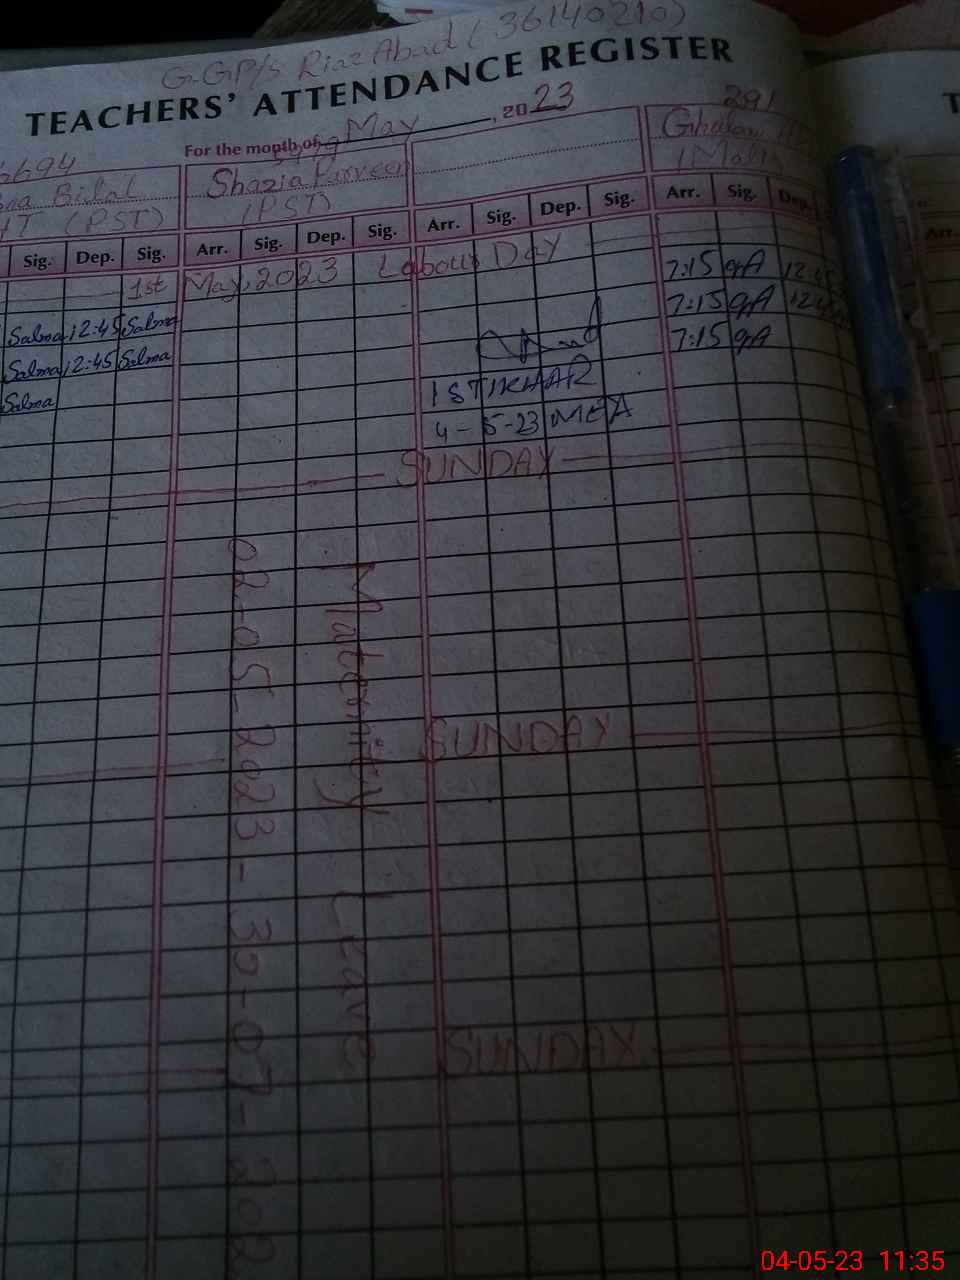 G.GP/S Riaz Abad (36140210)
TEACHERS' ATTENDANCE REGISTER
For the month of May, 2023
291
Bilal
Shazia Parveen
Ghulam
(PST)
(PST)
(Mali)
Sig. Dep. Sig. Arr. Sig. Dep. Sig. Arr. Sig. Dep. Sig. Arr. Sig. Dep.
1st May, 2023 Labour Day
7:15 gA 12:45
Salma 12:45 Salma
7:15 gA 12:45
Salma 12:45 Salma
7:15 gA
Salma
ISTIKHAR
4-5-23 MEA
SUNDAY
Maternity Leave
02-05-2023-30-07-202
SUNDAY
SUNDAY
Arr.
04-05-23 11:35